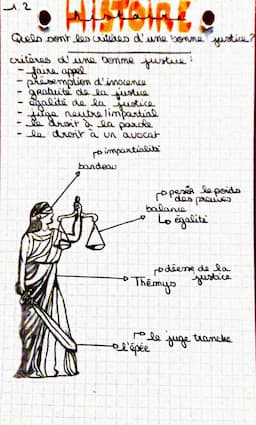 1.2
HISTOIRE
histoire
Quels sont les critères d'une bonne justice?
critères d'une bonne justice :
- faire appel
- présemption d'inocence
- gratuité de la justice
- égalité de la justice
- juge neutre impartial
- le droit à la parole
- le droit à un avocat
impartialité
bandeau
peser le poids
des preuves
balance
égalité
déesse de la
justice
Thémys
le juge tranche
l'épée